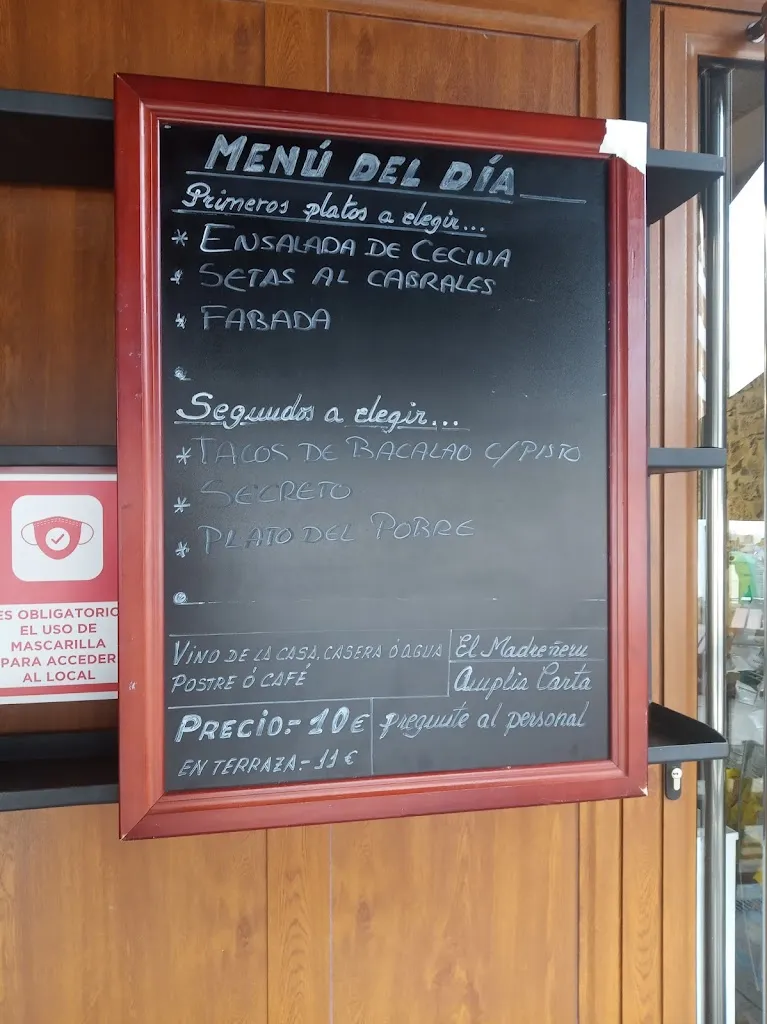 MENÚ DEL DÍA
Primeros platos a elegir...
* ENSALADA DE CECINA
* SETAS AL CABRALES
* FABADA
Segundos a elegir...
* TACOS DE BACALAO C/PISTO
* SECRETO
* PLATO DEL POBRE
VINO DE LA CASA, CASERA Ó AGUA
POSTRE Ó CAFÉ
El Madreñeru
Amplia Carta
pregunte al personal
PRECIO.- 10€
EN TERRAZA.- 11€
ES OBLIGATORIO
EL USO DE
MASCARILLA
PARA ACCEDER
AL LOCAL